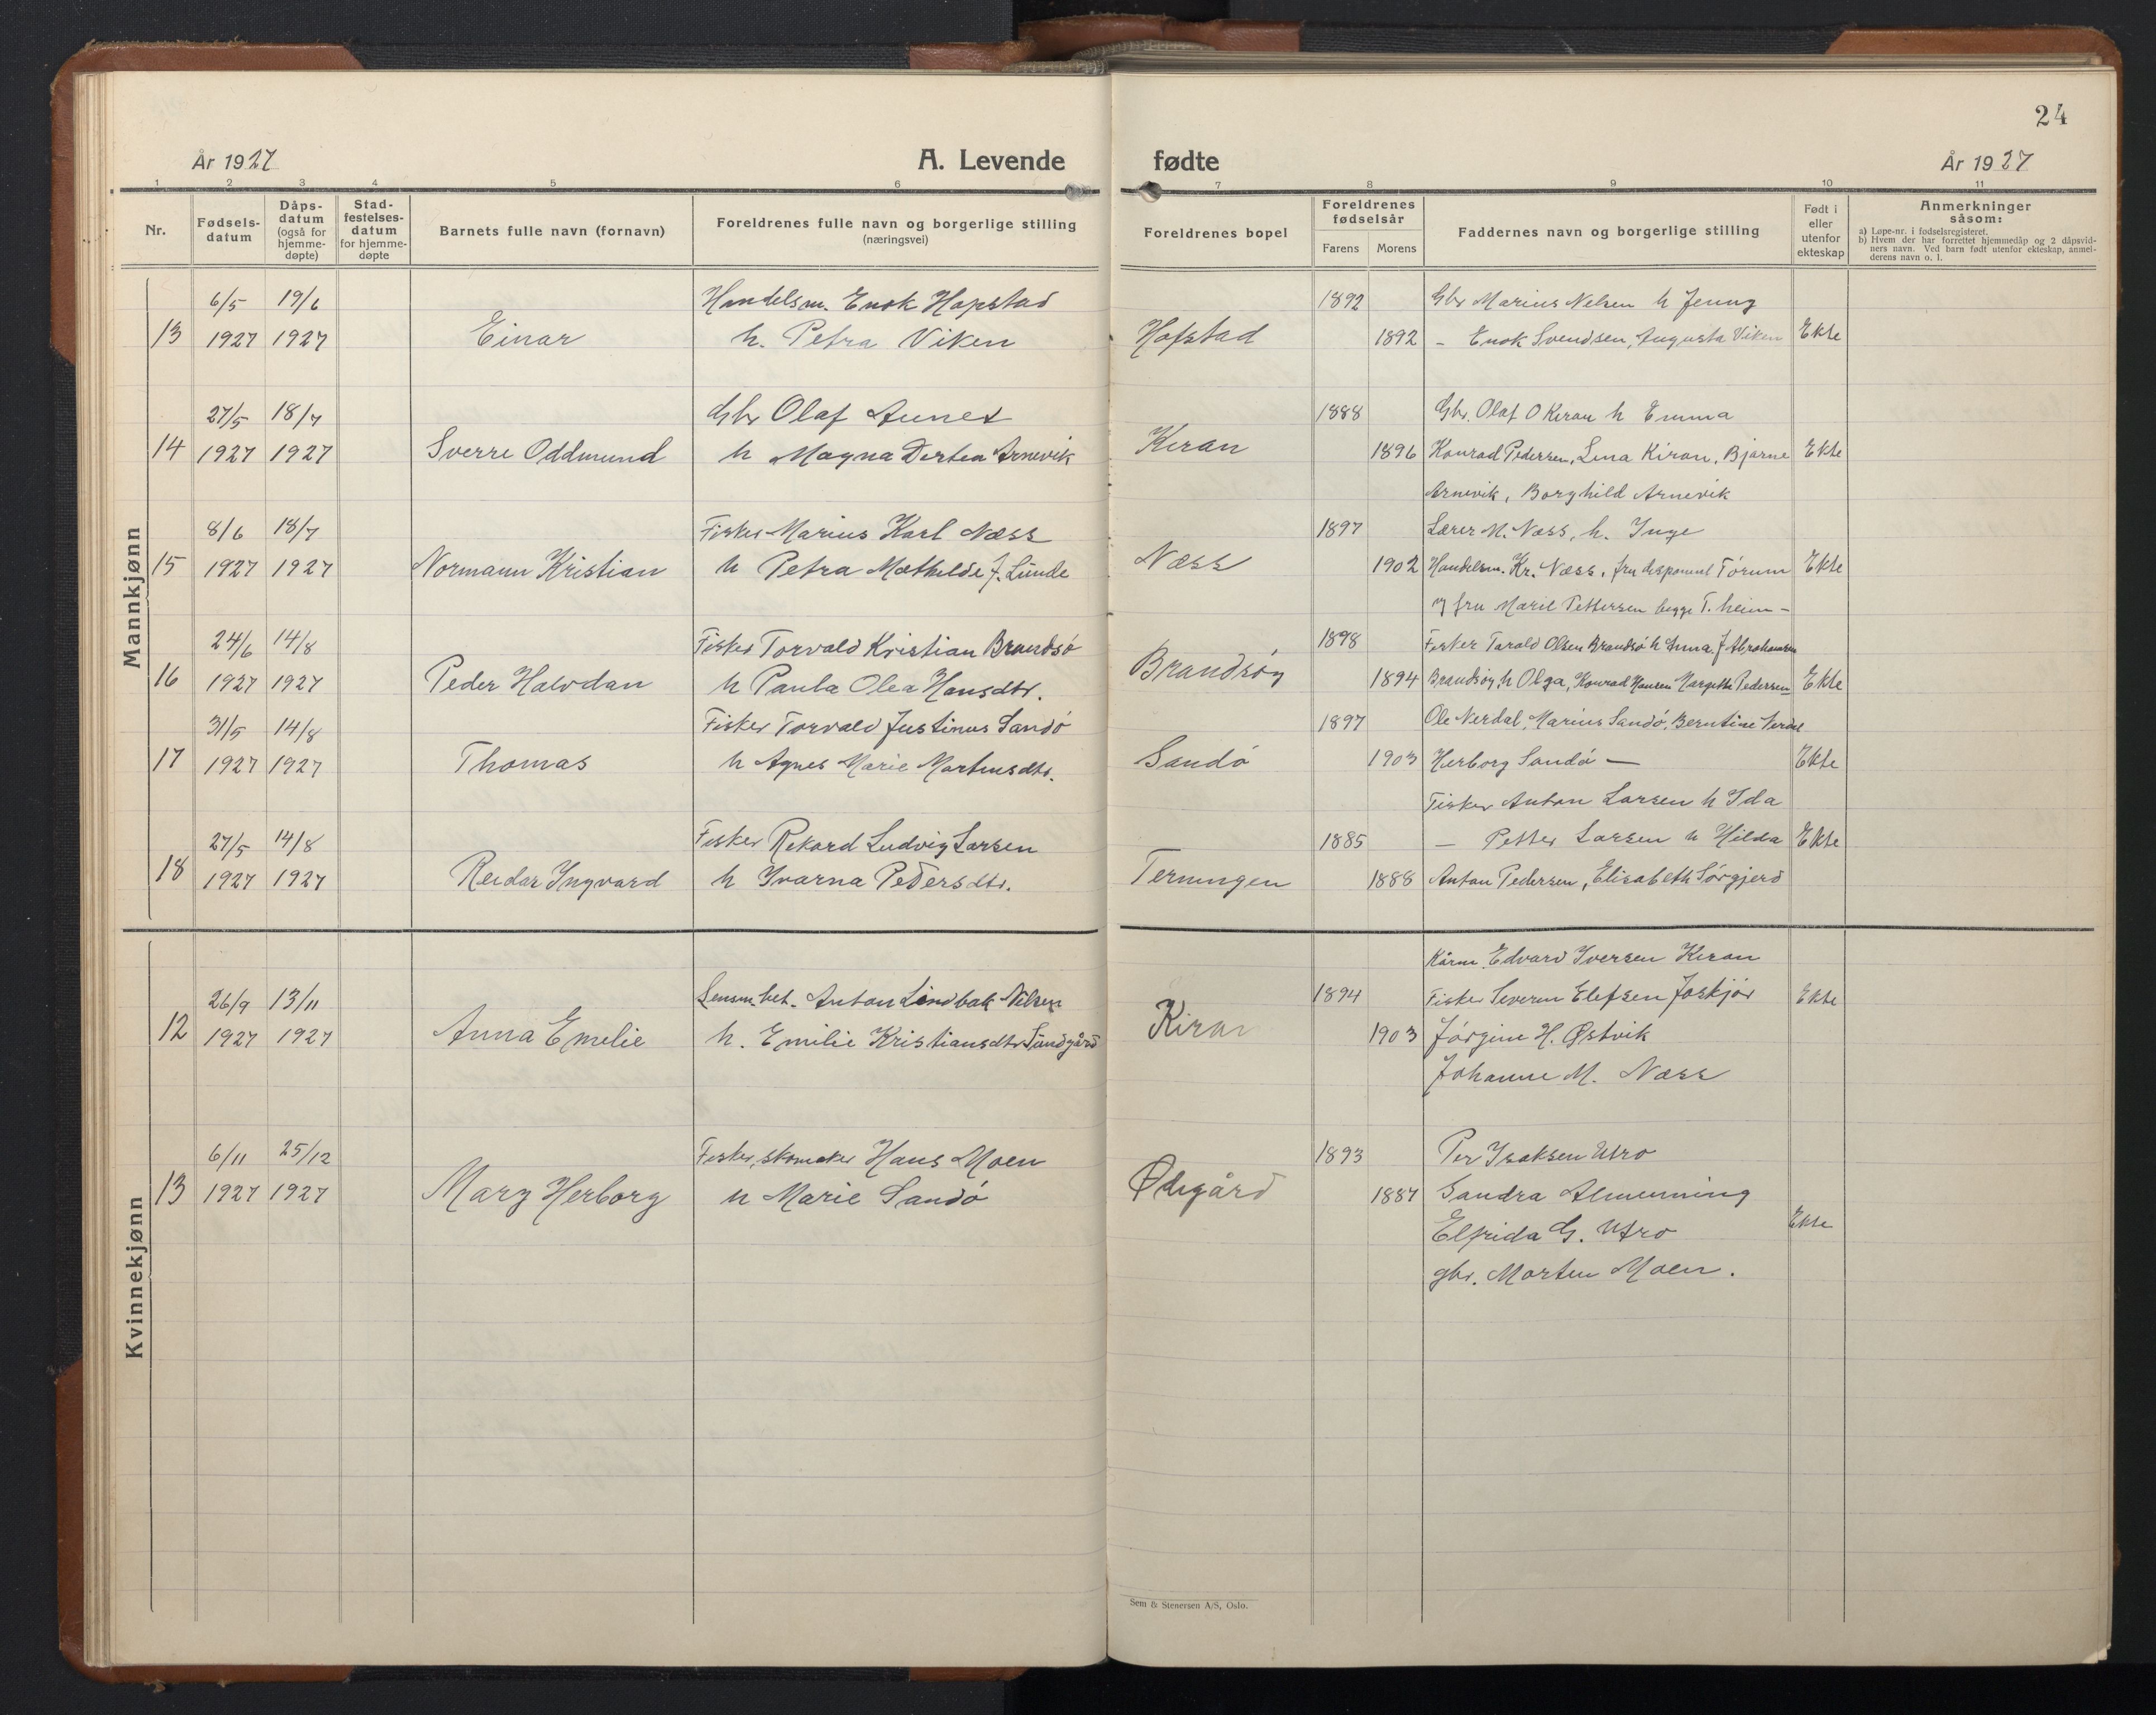 24
År 1927
A. Levende fødte
År 1927
1 2 3 4 5 6 7 8 9 10 11
Nr.
Fødsels-
datum
Dåps-
datum
(også for
hjemme-
døpte)
Stad-
festelses-
datum
for hjemme-
døpte
Barnets fulle navn (fornavn)
Foreldrenes fulle navn og borgerlige stilling
(næringsvei)
Foreldrenes bopel
Foreldrenes
fødselsår
Farens Morens
Faddernes navn og borgerlige stilling
Født i
eller
utenfor
ekteskap
Anmerkninger
såsom:
a) Løpe-nr. i fødselsregisteret.
b) Hvem der har forrettet hjemmedåp og 2 dåpsvid-
ners navn. Ved barn født utenfor ekteskap, anmel-
derens navn o. l.
Mannkjønn
6/5 19/6 Handelsm. Enok Hopstad 1892 Gbr Marius Nelsen h Jenny
13 1927 1927 Einar h. Petra Viken Hofstad 1892 – Enok Svendsen, Augusta Viken Ekte
27/5 18/7 Gbr Olaf Aunet 1888 Gbr. Olaf O Kiran h Emma
14 1927 1927 Sverre Oddmund h Magna Dortea Arnevik Kiran 1896 Konrad Pedersen, Lina Kiran, Bjarne Ekte
Arnevik, Borghild Arnevik
8/6 18/7 Fisker Marius Karl Næss 1897 Lærer M. Næss, h. Inga
15 1927 1927 Normann Kristian h Petra Mathilde J. Lunde Næss 1902 Handelsm. Kr. Næss, fru disponent Torum Ekte
og fru Marie Pettersen begge T.heim –
24/6 14/8 Fisker Torvald Kristian Brandsø 1898 Fisker Tarald Olsen Brandsø h Anna, J Abrahamsen
16 1927 1927 Peder Halvdan h Paula Olea Hansdtr. Brandsøy 1894 Brandsøy, h Olga, Konrad Hansen Margethe Pedersen Ekte
31/5 14/8 Fisker Torvald Justinus Sandø 1897 Ole Nerdal, Marius Sandø, Berntine Nerdal
17 1927 1927 Thomas h Agnes Marie Martinsdtr. Sandø 1903 Herborg Sandø — Ekte
Fisker Anton Larsen h Ida
27/5 14/8 Fisker Rikard Ludvig Larsen 1885 — Petter Larsen h Hilda Ekte
18 1927 1927 Reidar Ingvard h Ivarna Pedersdtr. Terningen 1888 Anton Pedersen, Elisabeth Sørgjerd
Kvinnekjønn
Kårm. Edvard Iversen Kiran
26/9 13/11 Lensm. bet. Anton Lindbak Nilsen 1894 Fisker Severin Elefsen Joskjør Ekte
12 1927 1927 Anna Emelie h. Emilie Kristiansdtr Sundgård Kiran 1903 Jørgine H. Østvik
Johanne M. Næss
6/11 25/12 Fisker, skomaker Hans Moen 1893 Per Isaksen Utro
13 1927 1927 Mary Herborg h Marie Sandø Ødegård 1887 Sandra Almenning
Elfrida G. Utro Ekte
gbr. Morten Moen.
Sem & Stenersen A/S, Oslo.